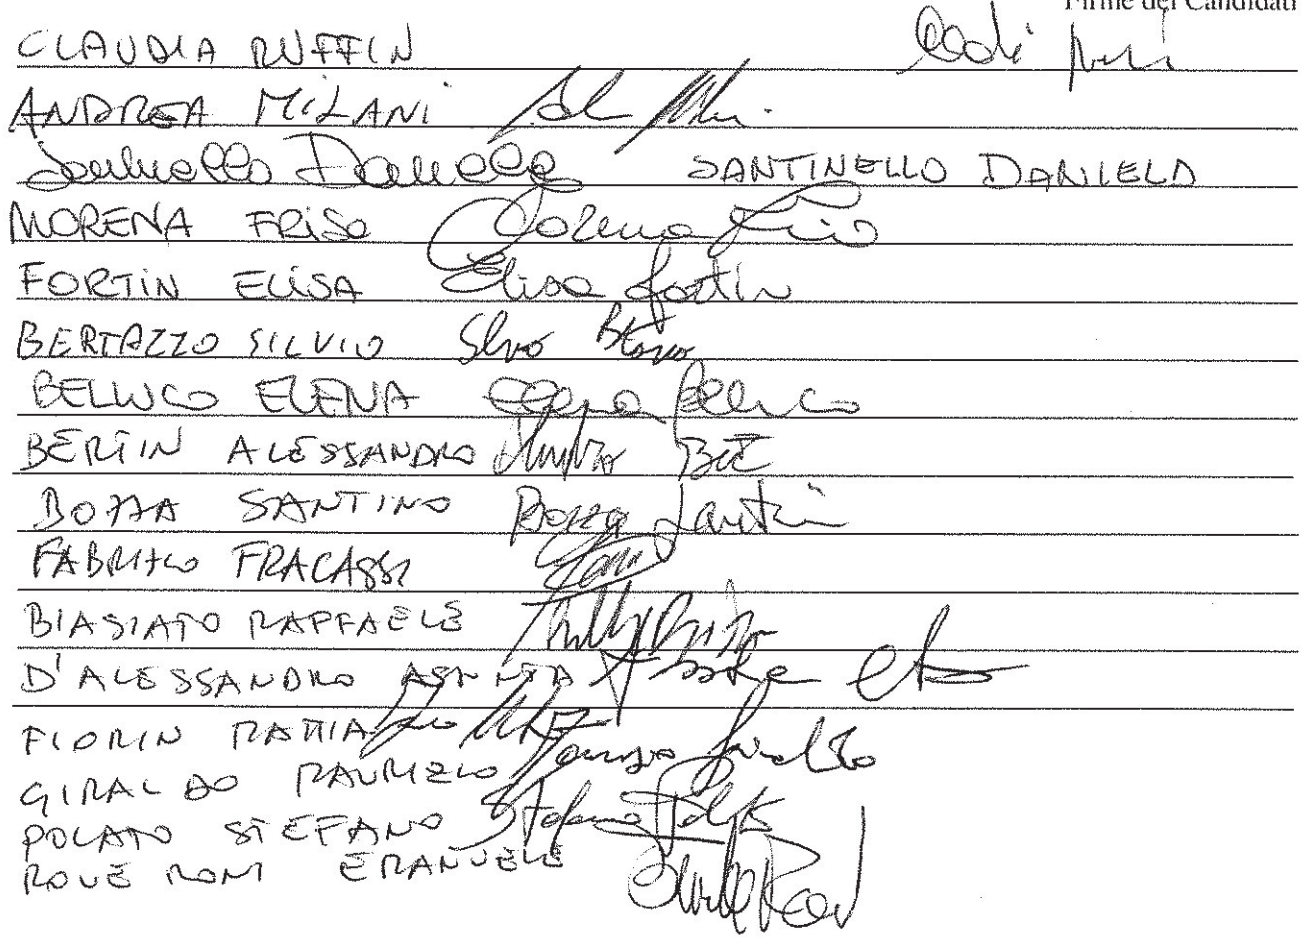 Firme dei Candidati
CLAUDIA RUFFIN
ANDREA MILANI
Santinello Daniela SANTINELLO DANIELA
MORENA FRISO Morena Friso
FORTIN ELISA Elisa Fortin
BERTAZZO SILVIO Silvio
BELLUCO ELENA Elena Belluco
BERTIN ALESSANDRO
BOZZA SANTINO Bozza Santin
FABRIZIO FRACASSI
BIASIATO RAFFAELE
D'ALESSANDRO ASSUNTA
FIORIN MATTIA
GIRALDO MAURIZIO Maurizio Giraldo
POLATO STEFANO Stefano Polato
ROVERONI EMANUELE